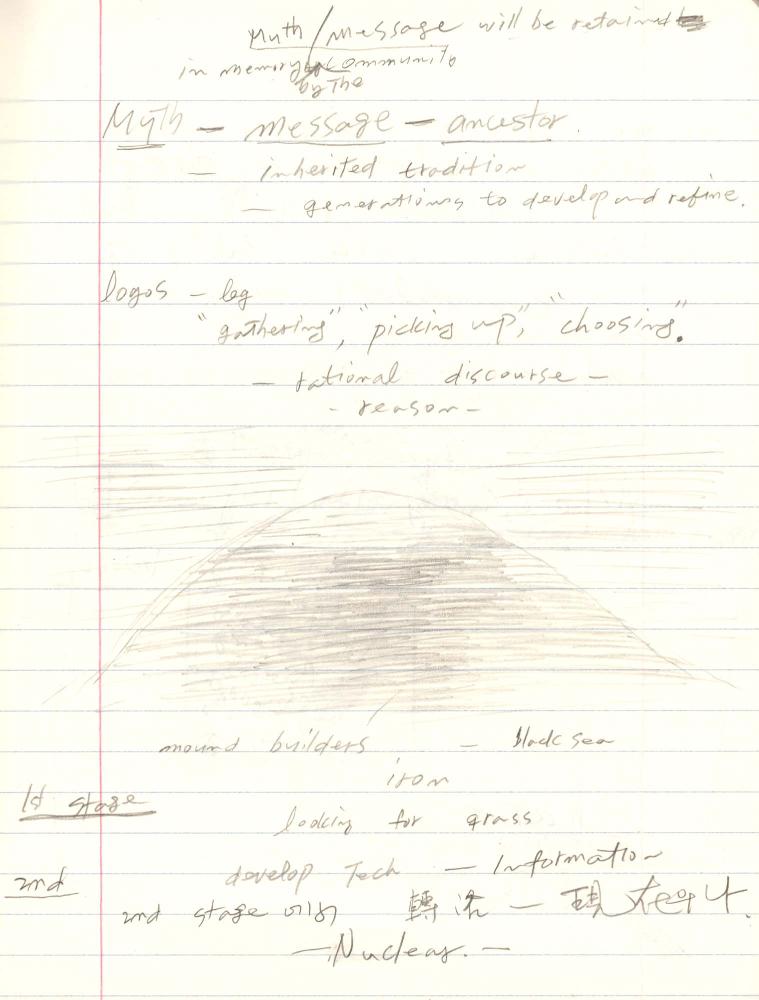 Myth/message will be retained
in memory community
by the
Myth — message — ancestor.
— inherited tradition
— generations to develop and refine.
logos — leg
"gathering", "picking up", "choosing".
— rational discourse —
- reason -
mound builders — black sea
iron
1st stage
looking for grass
develop Tech — Information
2nd
2nd stage 轉 — 現
— Nuclear. —